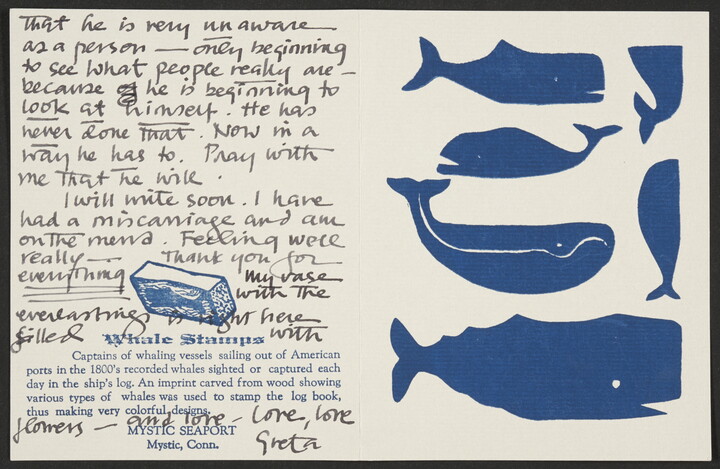 that he is very unaware
as a person — only beginning
to see what people really are —
because he is beginning to
look at himself. He has
never done that. Now in a
way he has to. Pray with
me that he will.
I will write soon. I have
had a miscarriage and am
on the mend. Feeling well
really — Thank you for
everything my vase
with the
everlastings is right here
filled with
Whale Stamps
Captains of whaling vessels sailing out of American
ports in the 1800's recorded whales sighted or captured each
day in the ship's log. An imprint carved from wood showing
various types of whales was used to stamp the log book,
thus making very colorful designs.
flowers — and love — Love, love
MYSTIC SEAPORT
Mystic, Conn.
Greta